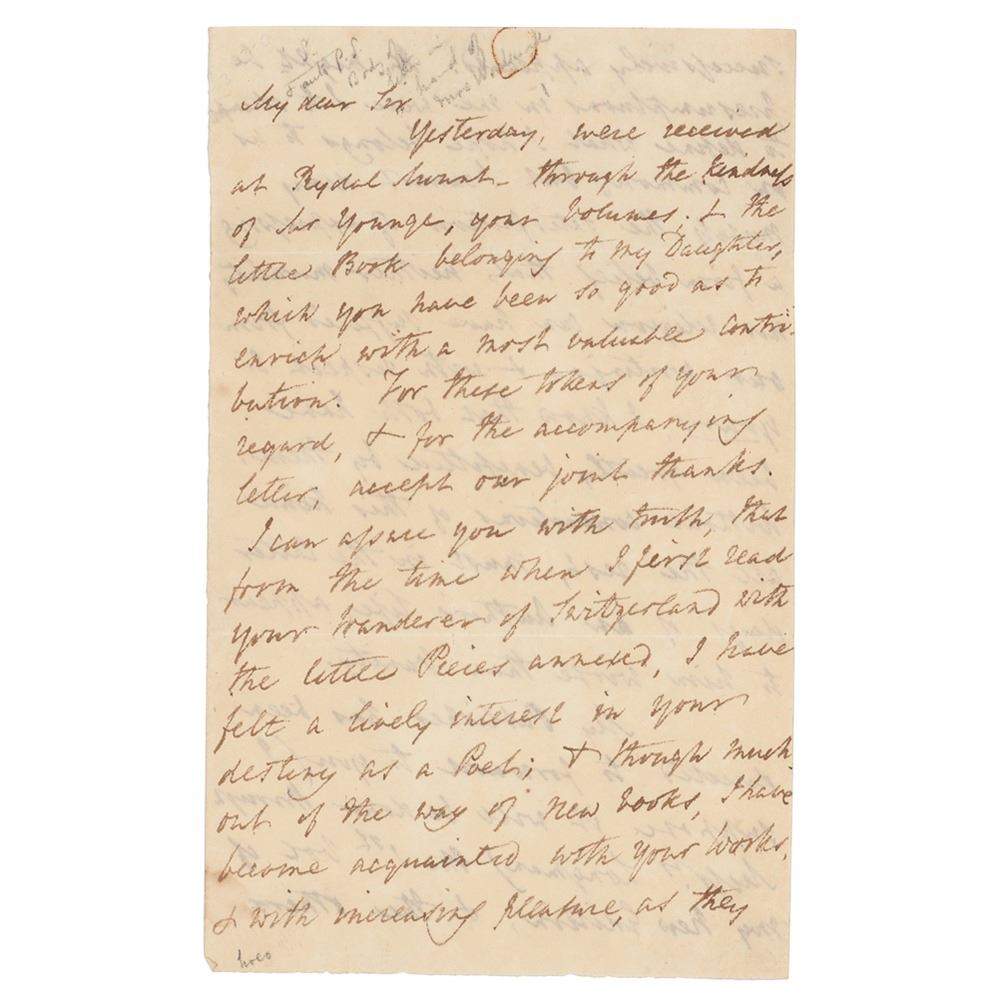 My dear Sir
Yesterday, were received
at Rydal Mount - through the kindness
of Mr Younge, your volumes. & the
little Book belonging to my Daughter,
which you have been so good as to
enrich with a most valuable contri-
bution. For these tokens of your
regard, & for the accompanying
letter, accept our joint thanks.
I can assure you with truth, that
from the time when I first read
your Wanderer of Switzerland with
the little Pieces annexed, I have
felt a lively interest in your
destiny as a Poet; & though much
out of the way of new books, I have
become acquainted with your works,
& with increasing pleasure, as they